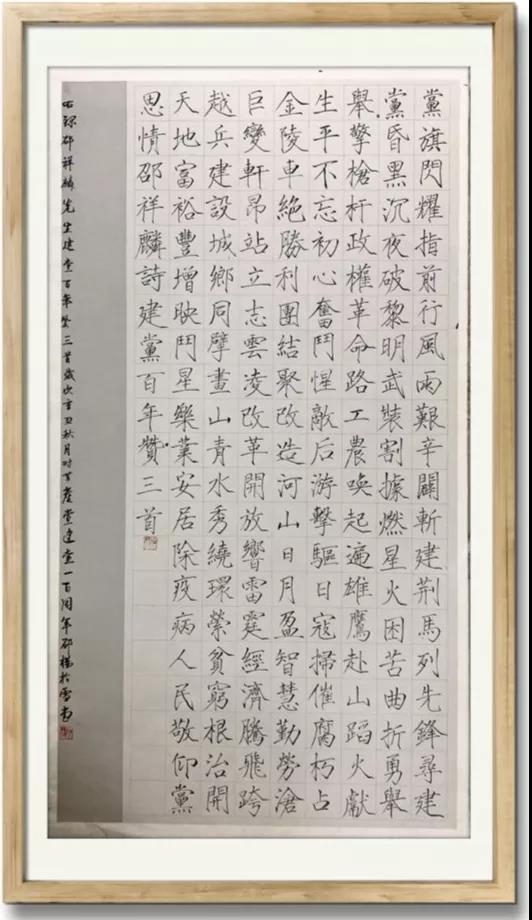 黨旗閃耀指前行風雨艱辛闢斬建荆馬列先鋒尋建
黨昏黑沉夜破黎明武裝割據燃星火困苦曲折勇舉
舉擎槍杆政權革命路工農喚起遍雄鷹赴山蹈火獻
生平不忘初心奮鬥惺敵后游擊驅日寇掃催腐朽占
金陵車絶勝利團結聚改造河山日月盈智慧勤勞滄
巨變軒昂站立志雲凌改革開放響雷霆經濟騰飛跨
越兵建設城鄉同擘畫山青水秀繞環縈貧窮根治開
天地富裕豐增映鬥星樂業安居除疫病人民敬仰黨
恩情邵祥麟詩建黨百年贊三首
右錄邵祥麟先生建黨百年贊三首歲次辛丑秋月時共產黨建黨一百周年邵楊於